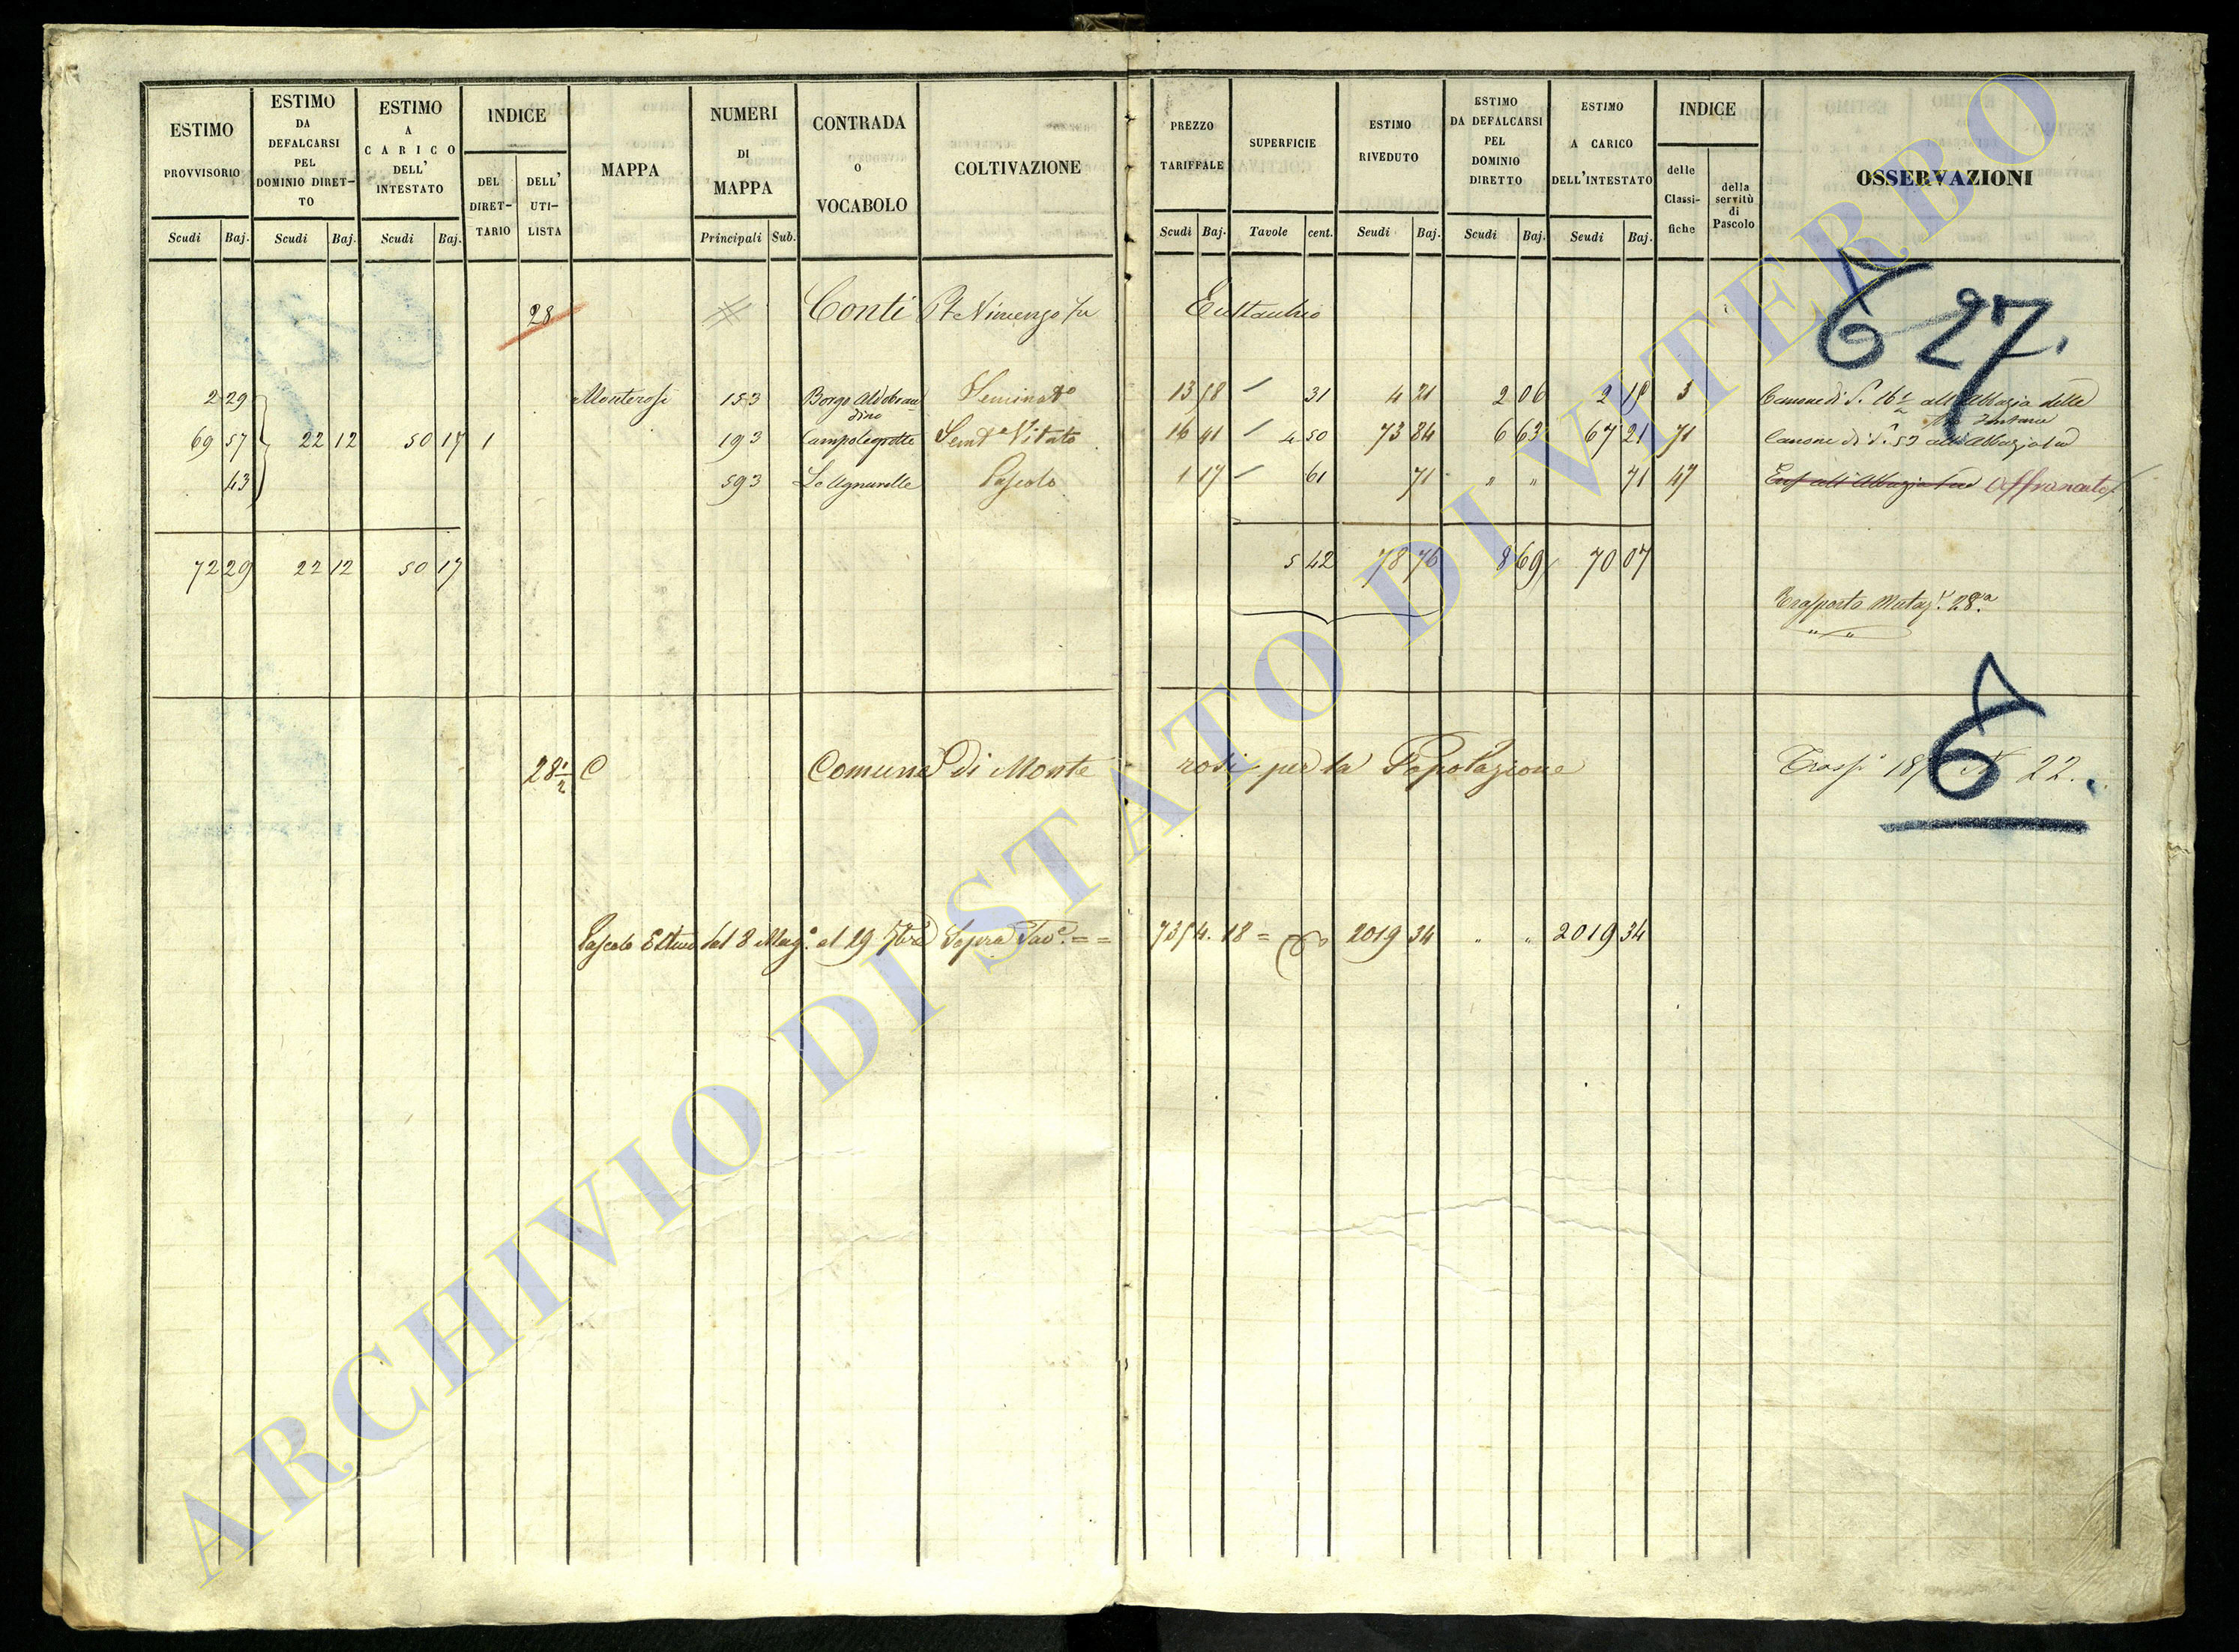 ESTIMO PROVVISORIO
ESTIMO DA DEFALCARSI PEL DOMINIO DIRET- TO
ESTIMO A CARICO DELL' INTESTATO
INDICE
DEL DIRET- TARIO
DELL' UTI- LISTA
MAPPA
NUMERI DI MAPPA
CONTRADA O VOCABOLO
COLTIVAZIONE
PREZZO TARIFFALE
SUPERFICIE
ESTIMO RIVEDUTO
ESTIMO DA DEFALCARSI PEL DOMINIO DIRETTO
ESTIMO A CARICO DELL'INTESTATO
INDICE
delle Classi- fiche
della servitù di Pascolo
OSSERVAZIONI
Scudi Baj. Scudi Baj. Scudi Baj. Principali Sub. Scudi Baj. Tavole cent. Scudi Baj. Scudi Baj. Scudi Baj.
28 Conti Vincenzo fu Eustachio
627.
2 29 Monterosi 153 Borgo Aldobran- dino Seminato 13 58 31 4 21 2 06 2 15 3 Canone di S. 16 1/2 all'Abbazia delle
Tre Fontane
69 57 22 12 50 17 1 193 Campolegrotte Semo Vitato 16 41 4 50 73 84 6 63 67 21 71 Canone di S. 53 all'Abbazia sud
43 593 Pascolo 1 17 61 71 " " 71 47 all'Abbazia sud Affrancato
72 29 22 12 50 17 5 42 78 76 8 69 70 07
Trasporto Mutaz. 28.a
" "
28 1/2 C Comune di Monte rosi per la Popolazione
22.
6.
Pascolo Estivo dal 8 Mag.o al 29 7bre Sopra Tav.e = = 7354. 18 = 2019 34 " " 2019 34
ARCHIVIO DI STATO DI VITERBO